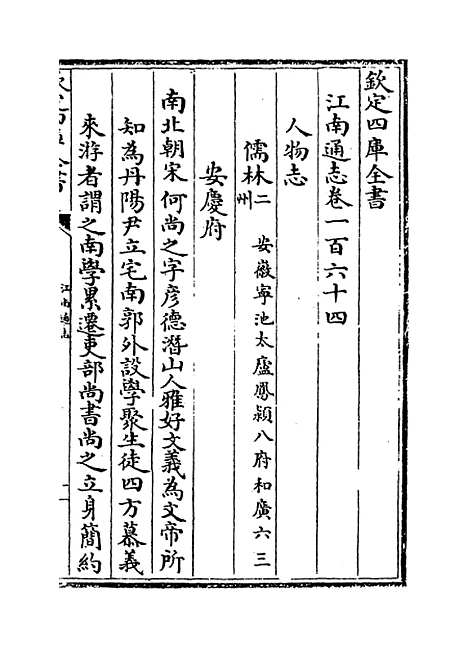 欽定四庫全書
江南通志卷一百六十四
人物志
儒林二 安徽寧池太廬鳳潁八府和廣六三
州
安慶府
南北朝宋何尚之字彥德潛山人雅好文義為文帝所
知為丹陽尹立宅南郭外設學聚生徒四方慕義
來游者謂之南學累遷吏部尚書尚之立身簡約
江南通志